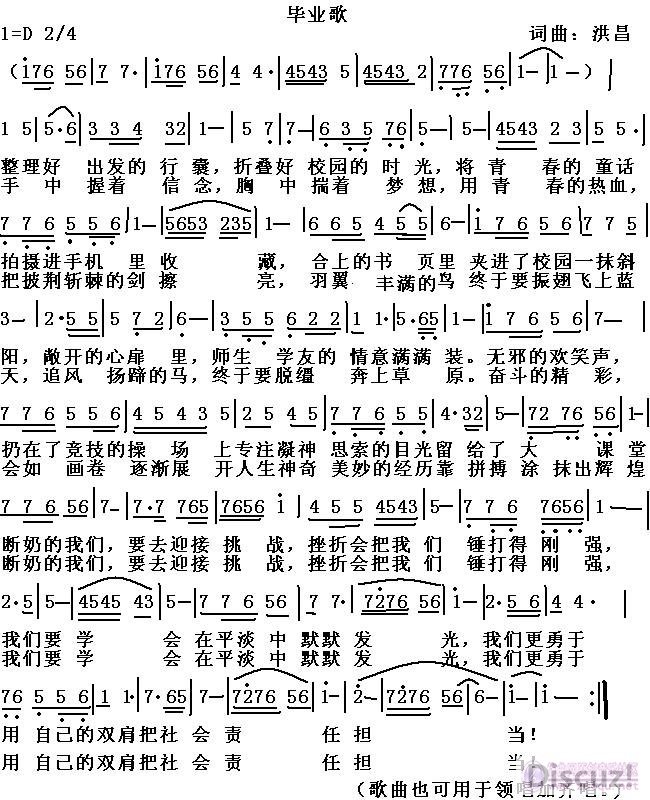 毕业歌
1=D 2/4 词曲：洪昌
（176 56|7 7·|176 56|4 4·|4543 5|4543 2|776 56|1-|1-）|
1 5|5·6|3 3 4 32|1-|5 7|7-|6 3 5 76|5-|5-|4543 2 3|5 5·|
整理好 出发的 行 囊，折叠好 校园的 时 光，将 青 春的 童话
手 中 握着 信 念，胸 中 揣着 梦 想，用 青 春的热血，
7 7 6 5 5 6|1-|5653 235|1-|6 6 5 4 5 5|6-|1 7 6 5 6|7 7 5|
拍摄进手机 里 收 藏，合上的书 页里 夹进了校园一抹斜
把披荆斩棘的剑 擦 亮，羽翼 丰满的鸟 终于要振翅飞上蓝
3-|2·5 5|5 7 6 2·|3 3 5 6 2 2|1 1·|5·65|1-|1 7 6 5 6|7-|
阳，敞开的心扉 里，师生 学友的 情意满满 装。无邪的欢笑声，
天，追风 扬蹄的马，终于要脱缰 奔上草 原。奋斗的精 彩，
7 7 6 5 5 6|4 5 4 3 5|2 5 4 5|7 7 6 5 5|4·32|5-|72 76 56|1-|
扔在了竞技的操 场 上专注凝神 思索的目光留 给了大 课堂
会如 画卷 逐渐展 开人生神奇 美妙的经历靠 拼搏 涂 抹出辉煌
7 7 6 56|7-|7·7 765|7656 1|4 5 5 4543|5-|7 7 6 7656|1-|
断奶的我们，要去迎接 挑 战，挫折会把我 们 锤打得 刚 强，
断奶的我们，要去迎接 挑 战，挫折会把我 们 锤打得 刚 强，
2·5|5-|4545 43|5-|7 7 6 56|7 7·|7276 56|1-|2·5 6|4 4·|
我们要 学 会 在平淡 中 默默 发 光，我们更勇于
我们要 学 会 在平淡 中 默默 发 光，我们更勇于
76 5 5 6|1 1·|7·65|7-|7276 56|1-|2-|7276 56|6-|1-|1-:|
用 自己的双肩把社 会 责 任 担 当！
用 自己的双肩把社 会 责 任 担 当
（歌曲也可用于领唱加齐唱。）
Discuz!